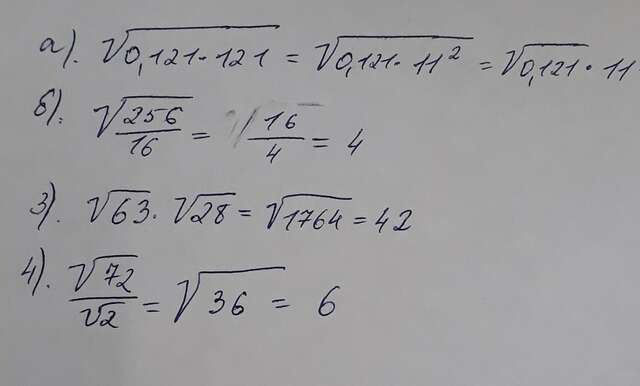 а). √0,121·121 = √0,121·11² = √0,121·11
б). √256/16 = 16/4 = 4
3). √63·√28 = √1764 = 42
4). √72/√2 = √36 = 6